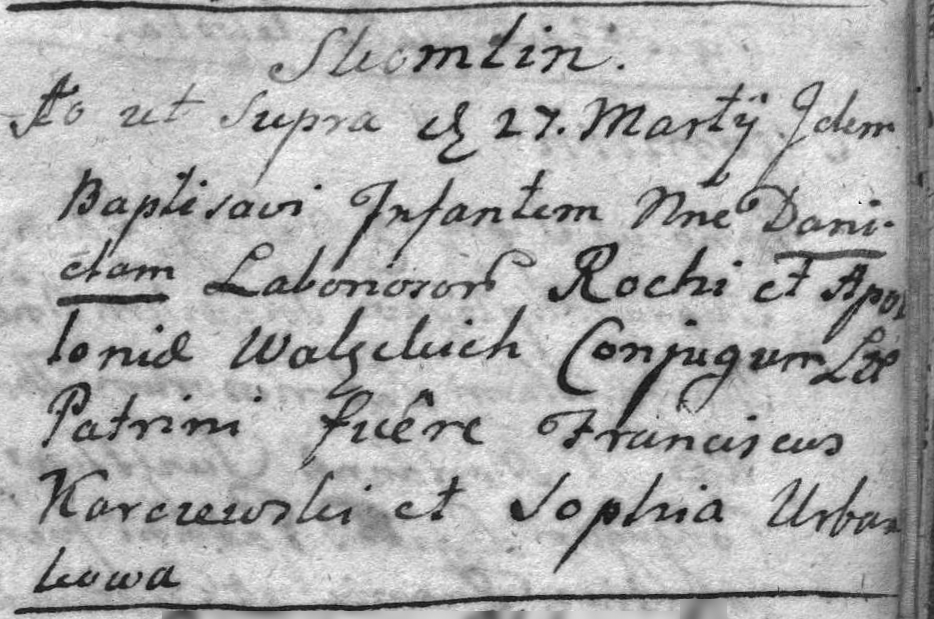 Skomlin.
Ao ut Supra die 27. Martÿ Idem
Baptisavi Infantem Nne Dani-
elam Laboriosor Rochi et Apol
loniæ Walęckich Conjugum
Patrini fuêre Franciscus
Karczewski et Sophia Urban
kowa